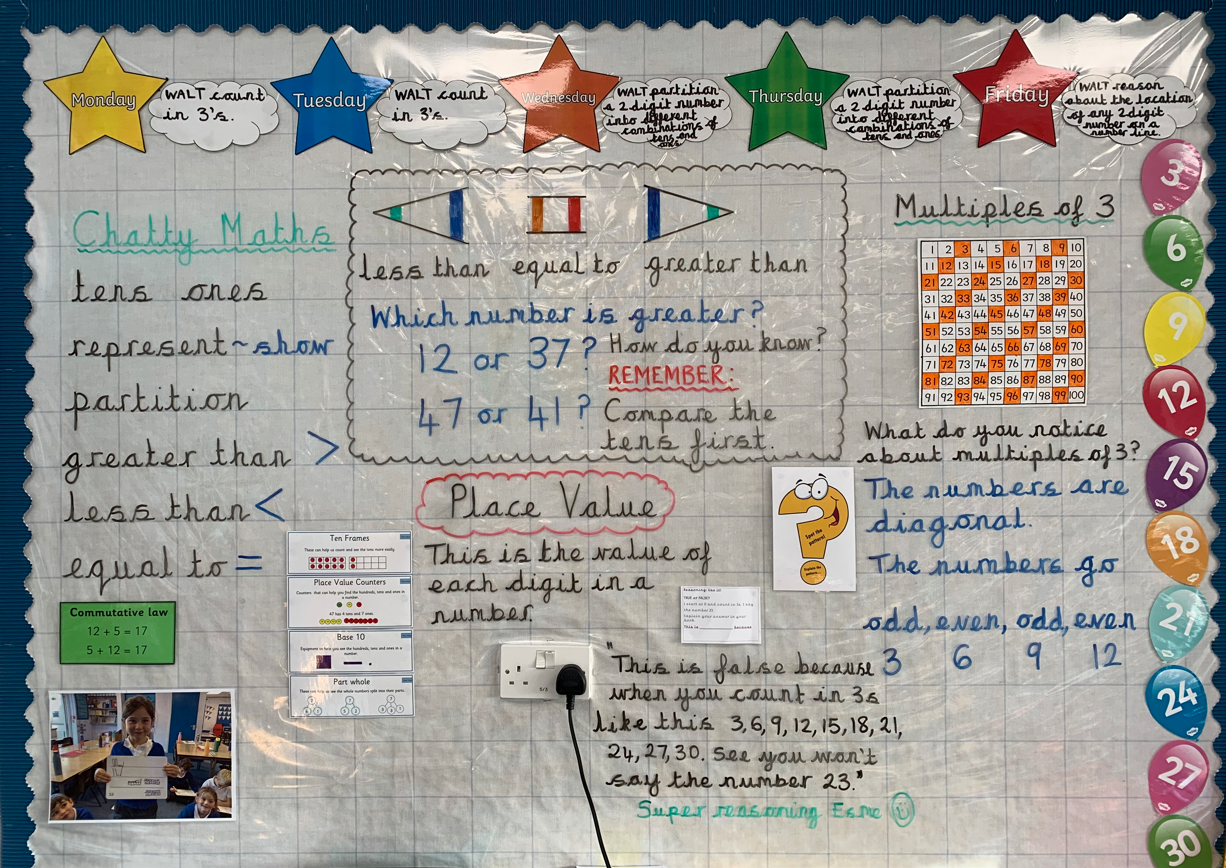 Monday
WALT count
in 3's.
Tuesday
WALT count
in 3's.
Wednesday
WALT partition
a 2 digit number
into different
combinations of
tens and
ones
Thursday
WALT partition
a 2 digit number
into different
combinations of
tens and ones
Friday
WALT reason
about the location
of any 2digit
number on a
number line.
Chatty Maths
tens ones
represent ~ show
partition
greater than >
less than <
equal to =
Commutative law
12 + 5 = 17
5 + 12 = 17
less than equal to greater than
Which number is greater?
12 or 37? How do you know?
REMEMBER:
47 or 41? Compare the
tens first.
Place Value
This is the value of
each digit in a
number.
Ten Frames
These can help us count and see the tens more easily.
Place Value Counters
Counters that can help you find the hundreds, tens and ones in a
number.
47 has 4 tens and 7 ones.
Base 10
Equipment to help you see the hundreds, tens and ones in a
number.
Part whole
Multiples of 3
1 2 3 4 5 6 7 8 9 10
11 12 13 14 15 16 17 18 19 20
21 22 23 24 25 26 27 28 29 30
31 32 33 34 35 36 37 38 39 40
41 42 43 44 45 46 47 48 49 50
51 52 53 54 55 56 57 58 59 60
61 62 63 64 65 66 67 68 69 70
71 72 73 74 75 76 77 78 79 80
81 82 83 84 85 86 87 88 89 90
91 92 93 94 95 96 97 98 99 100
What do you notice
about multiples of 3?
Spot the
pattern!
Explain the
pattern...
The numbers are
diagonal.
The numbers go
odd, even, odd, even
3 6 9 12
TRUE or FALSE?
I start at 0 and count in 3s. I say
the number 23.
Explain your answer to your
This is because
"This is false because
when you count in 3s
like this 3,6,9,12,15,18,21,
24,27,30. See you won't
say the number 23."
Super reasoning Esme
3
6
9
12
15
18
21
24
27
30